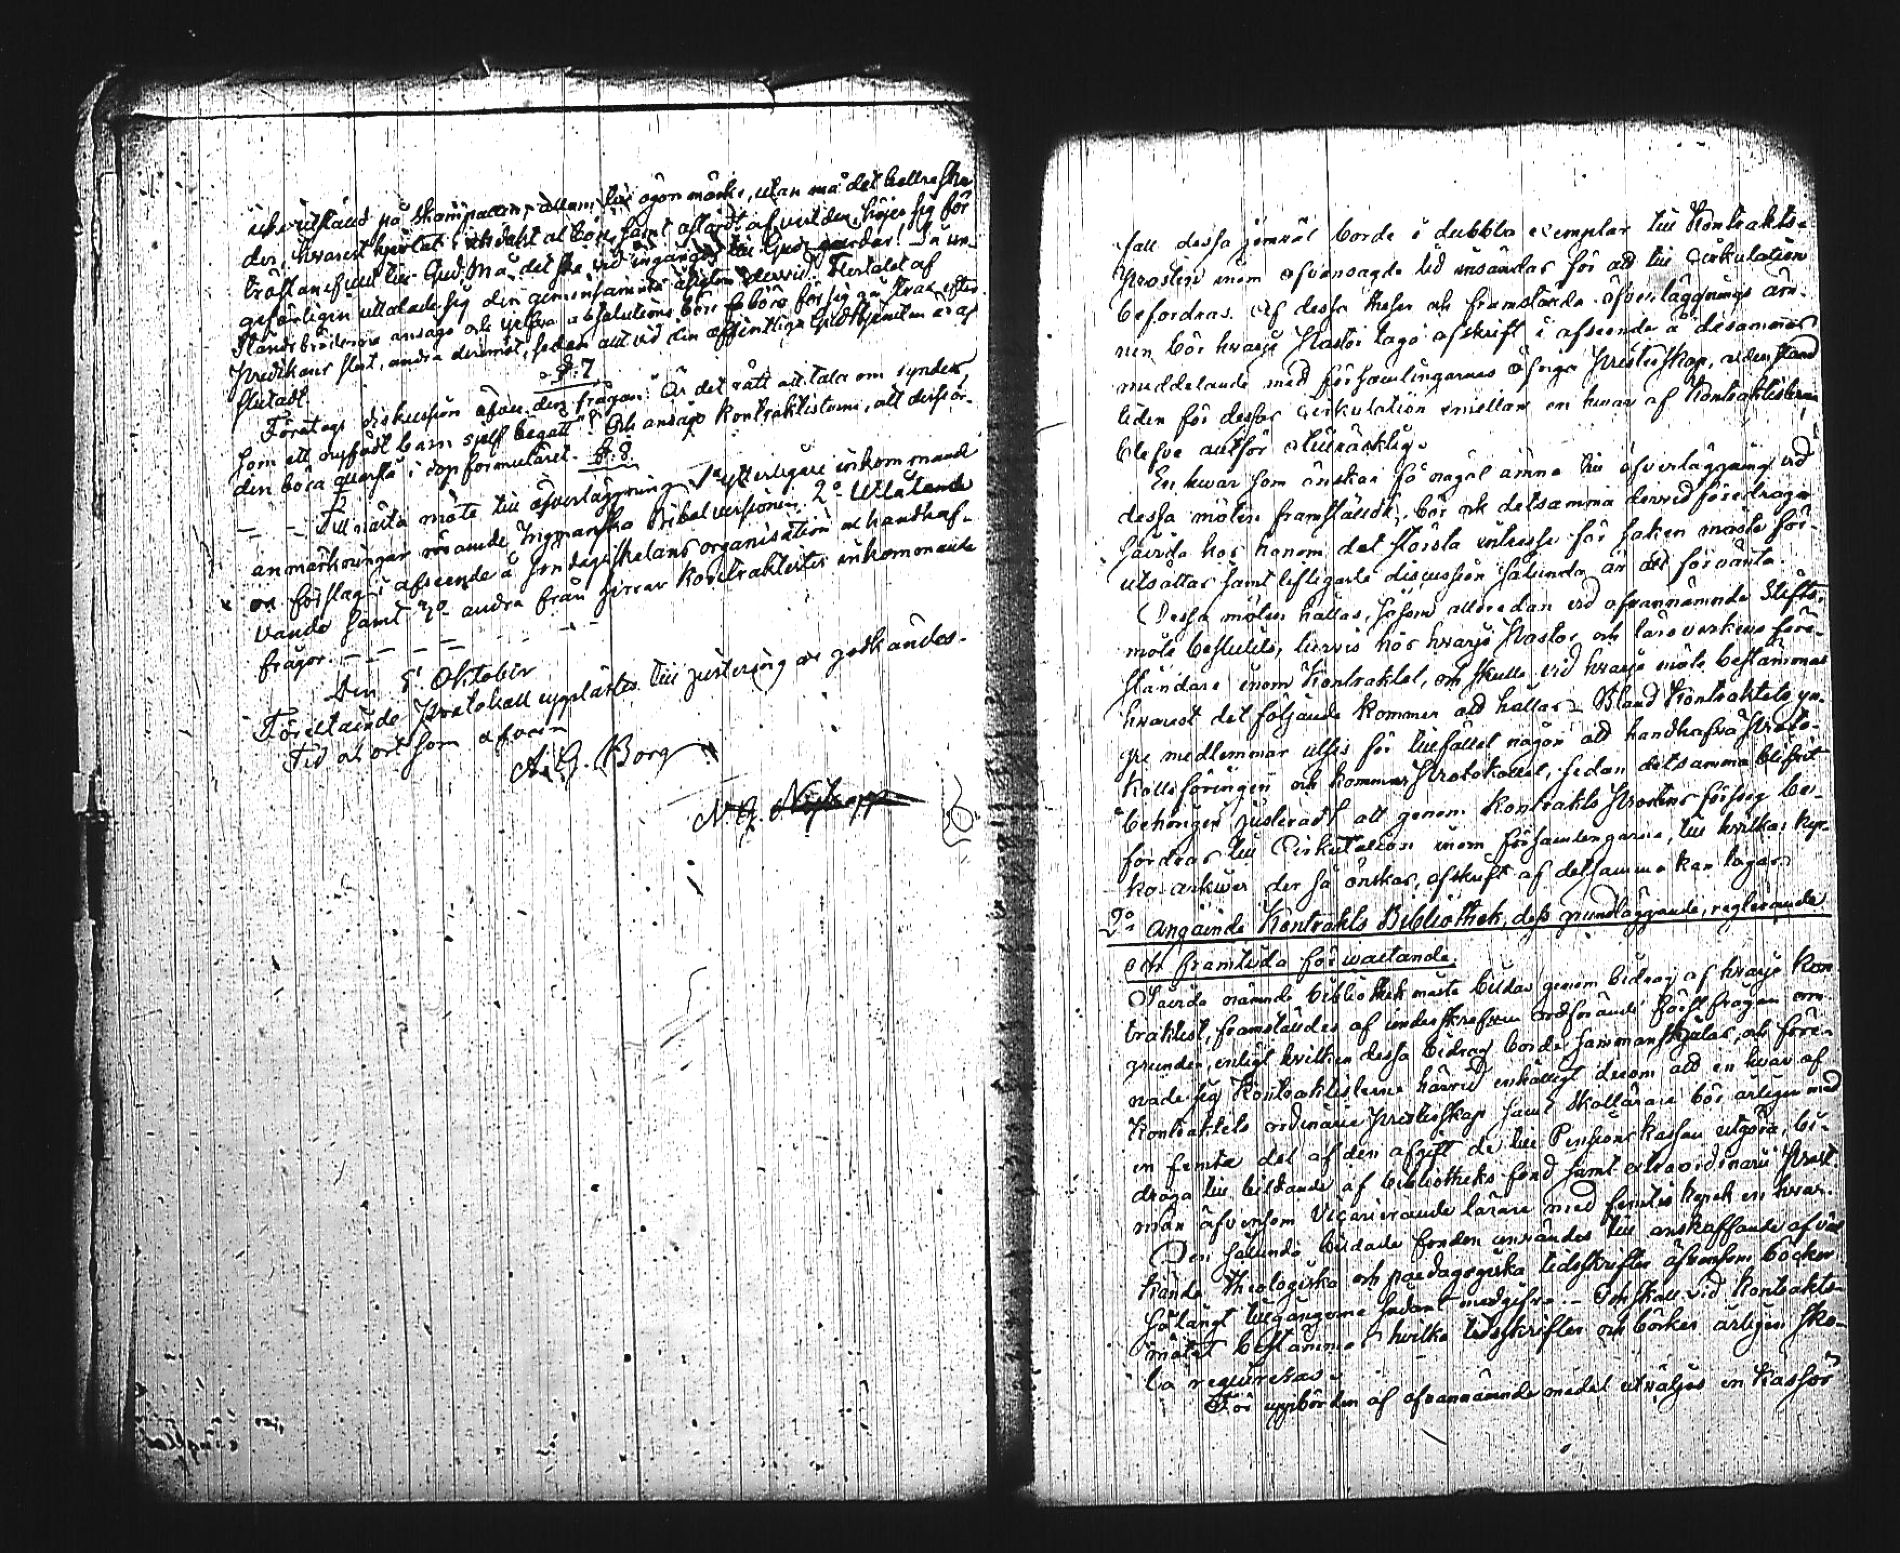 utan må det hellre ske
der, hvarest hjertat i samt aflärdt af verlden, höjer sig för
tröstan ifrån till Gud. Må det ske vid ingången till Guds gårdar! Så un-
gefärligen uttalade sig den gemensamma åsigten dervid. Flertalet af
Ståndsbröderne ansågo att sjelfva absolutions bön böra för sig gå strax efter
predikans slut, andra deremot, sedan allt vid den offentliga Gudstjensten är af
slutadt.
§. 7
Företogs diskussion öfver den frågan: Är det rätt att tala om synder
som ett nyfödt barn sjelf begått? Och ansågo Kontraktisterne, att dessa or-
den böra qvarstå i dopformuläret.
§. 8.
Till nästa möte till öfverläggning 1° ytterligare inkommande
anmärkningar rörande Ingmanska Bibelversionen, 2° Utlåtande
och förslag i afseende å Söndagsskolans organisation och handhaf-
vande samt 3° andra från Herrar Kontraktister inkommande
frågor.
Den 5 Oktober
Förestående Protokoll upplästes till justering och godkändes.
Tid och ort som ofvan
A. G. Borg
N. G.
fall dessa jemväl borde i dubbla exemplar till Kontrakts-
Prosten inom ofvansagde tid insändas för att till Cirkulation
befordras. Af dessa theser och framstälda öfverläggnings äm-
nen bör hvarje Pastor taga afskrift i afseende å desammas
meddelande med församlingarnas öfriga Presterskap, alldenstund
tiden för dessas Cirkulation emellan en hvar af Kontraktisterne
blefve alltför otillräcklig.
En hvar som önskar få något ämne till öfverläggning vid
dessa möten framstäldt, bör ock detsamma dervid föredraga
särda hos honom det största intresse för saken måste för-
utsättas samt lifligaste discussion sålunda är att förvänta.
Dessa möten hållas, såsom allaredan vid ofvannämnde Stifts-
möte beslutits, turvis hos hvarje Pastor och läroverkens före-
ståndare inom Kontraktet, och skulle vid hvarje möte bestämmas
hvarest det följande kommer att hållas. Bland Kontraktets yn-
gre medlemmar utses för tillfället någon att handhafva Proto-
kollsföringen och kommer Protokollet, sedan detsamma blifvit
behörigen justeradt att genom Kontrakts Prostens försorg be-
fordras till Cirkulation inom församlingarna, till hvilkas kyr-
ko arkiver der så önskas, afskrift af detsamma kan tagas.
2° Angående Kontrakts Bibliothek, dess grundläggande, reglerande
och framtida förvaltande.
Särda nämnde bibliothek måste bildas genom bidrag af hvarje Kon-
traktist, framstäldes af undertecknad ordförande först frågan om
grunden, enligt hvilken dessa bidrag borde sammanskjutas, och före-
nade sig Kontraktisterne härvid enhälligt derom att en hvar af
Kontraktets ordinarie Presterskap samt Skollärare bör årligen med
en femte del af den afgift de till Pensions kassan utgöra, bi-
draga till bildande af bibliotheks fond samt extraordinarie Prest-
män äfvensom Vicarierande lärare med femtio kopek en hvar.
Den sålunda bildade fonden användes till anskaffande af väl
kända theologiska och paedagogiska tidskrifter äfvensom böcker
så långt tillgångarne sådant medgifva. Och skall vid Kontrakts-
mötet bestämmas hvilka tidskrifter och böcker årligen sko-
la requireras.
För uppbörden af ofvannämnde medel utväljes en Kassör